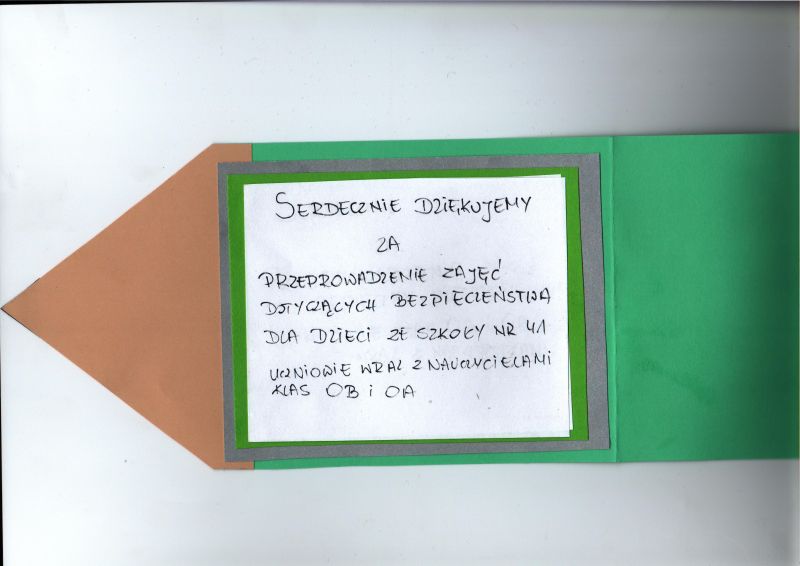 SERDECZNIE DZIĘKUJEMY
ZA
PRZEPROWADZENIE ZAJĘĆ
DOTYCZĄCYCH BEZPIECZEŃSTWA
DLA DZIECI ZE SZKOŁY NR 41
UCZNIOWIE WRAZ Z NAUCZYCIELAMI
KLAS OB i OA